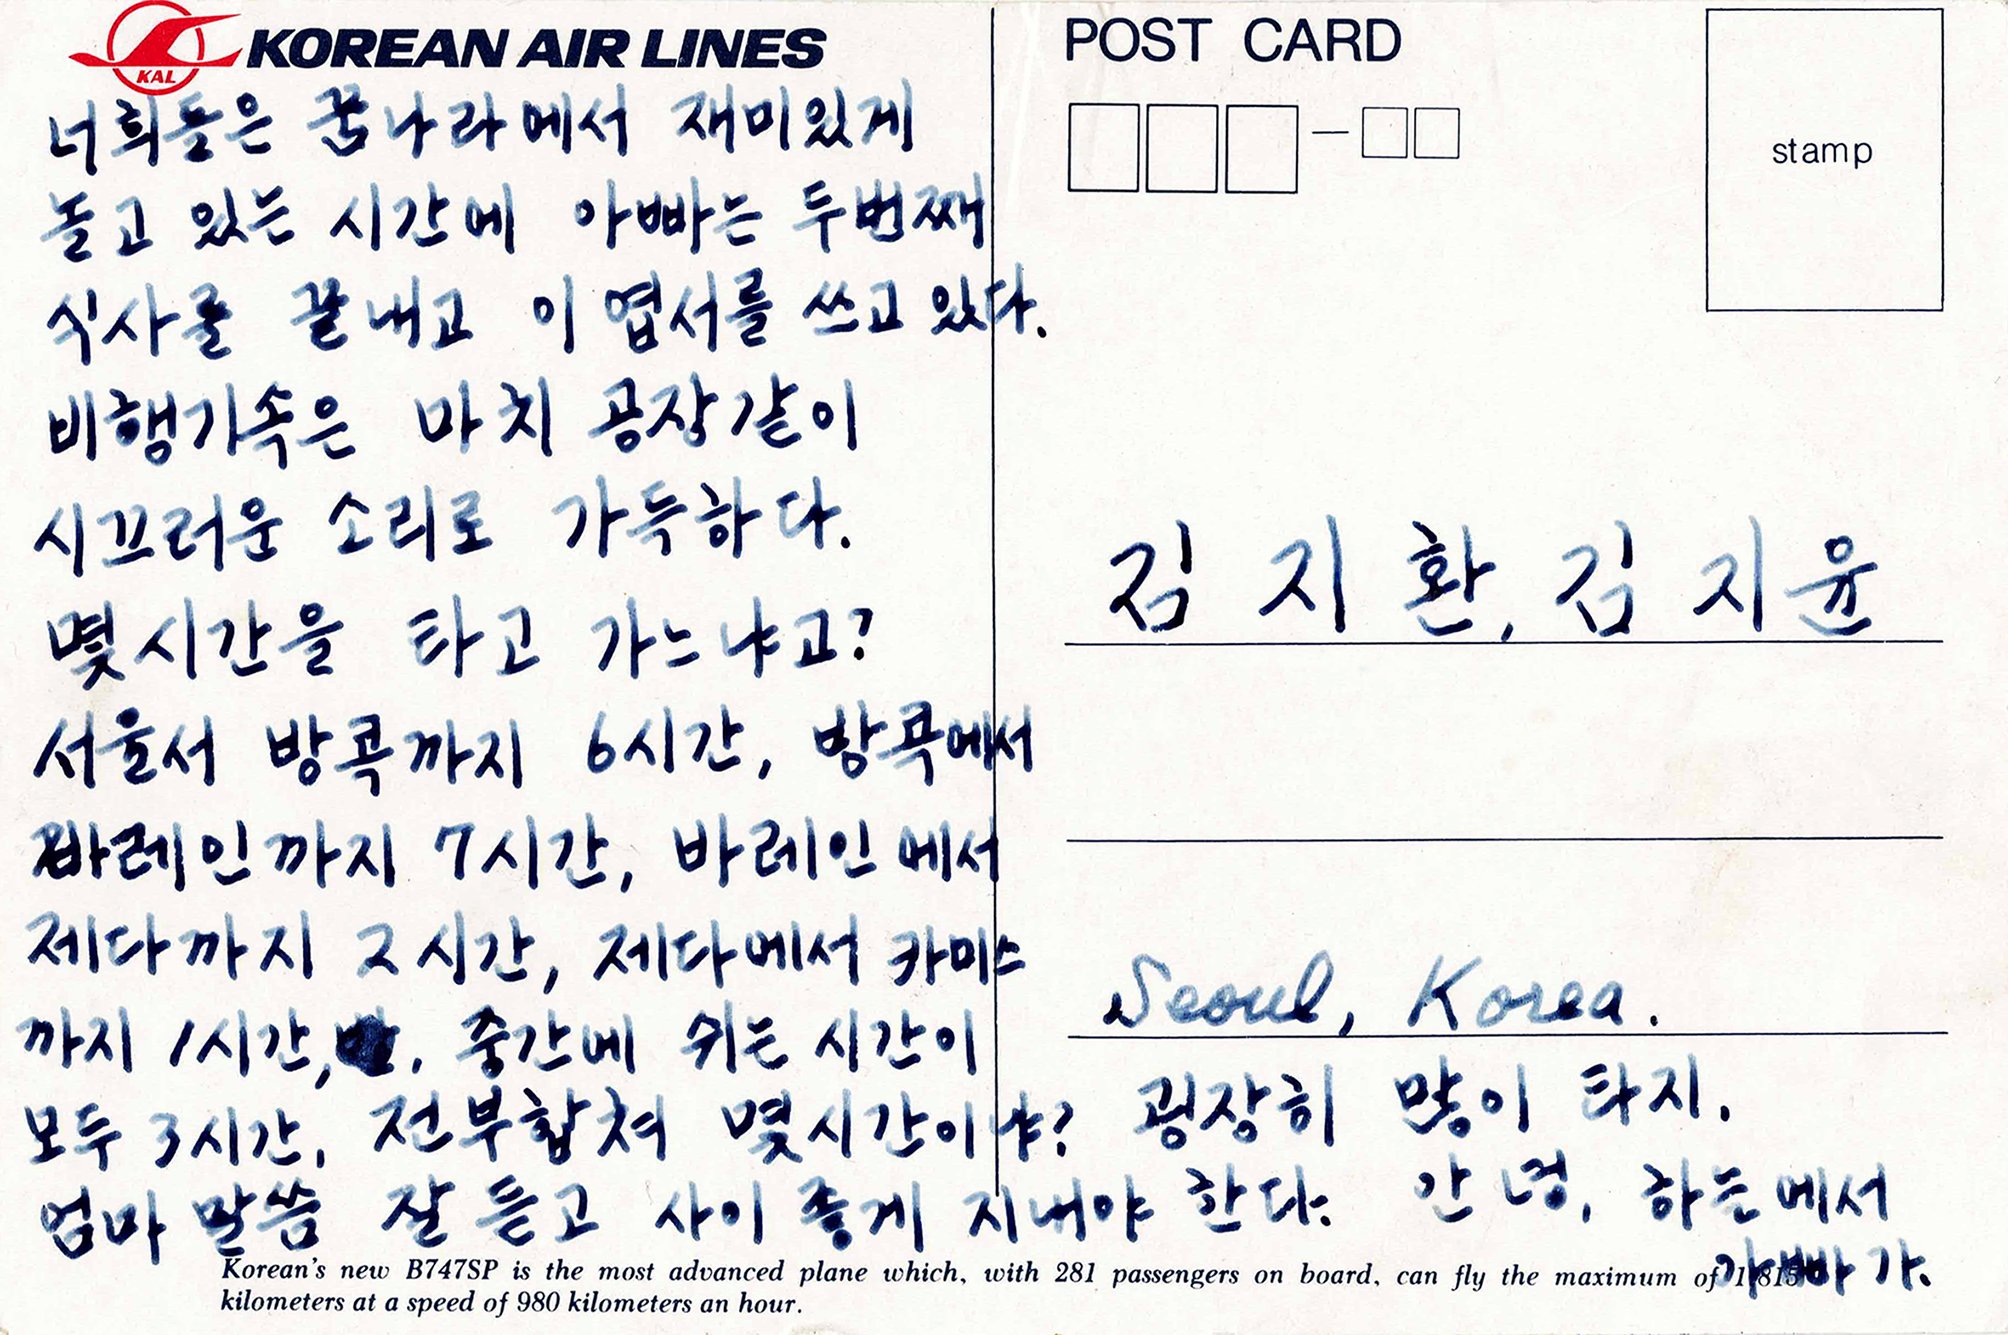 KAL KOREAN AIR LINES
너희들은 꿈나라에서 재미있게
놀고 있는 시간에 아빠는 두번째
식사를 끝내고 이 엽서를 쓰고 있다.
비행기속은 마치 공장같이
시끄러운 소리로 가득하다.
몇시간을 타고 가느냐고?
서울서 방콕까지 6시간, 방콕에서
바레인까지 7시간, 바레인에서
제다까지 2시간, 제다에서 카미스
까지 1시간, . 중간에 쉬는 시간이
모두 3시간, 전부합쳐 몇시간이냐? 굉장히 많이 타지.
엄마 말씀 잘 듣고 사이 좋게 지내야 한다. 안녕, 하늘에서
아빠가.
Korean's new B747SP is the most advanced plane which, with 281 passengers on board, can fly the maximum of
kilometers at a speed of 980 kilometers an hour.
POST CARD
stamp
김지환, 김지윤
Seoul, Korea.